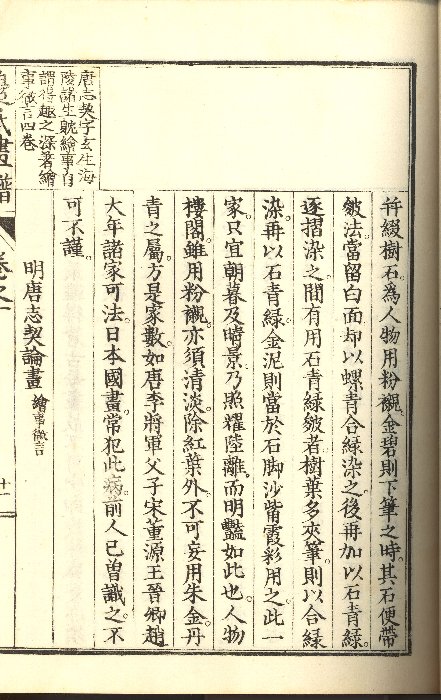 并綴樹石為人物用粉襯金碧則下筆之時其石便帶
皴法當留白面却以螺青合綠染之後再加以石青綠
逐摺染之間有用石青綠皴者樹葉多夾筆則以合綠
染再以石青綠金泥則當於石脚沙觜霞彩用之此一
家只宜朝暮及晴景乃照耀陸離而明艷如此也人物
樓閣雖用粉襯亦須清淡除紅葉外不可妄用朱金丹
青之屬方是家數如唐李將軍父子宋董源王晉卿趙
大年諸家可法日本國畫常犯此病前人已曾譏之不
可不謹
明唐志契論畫 繪事微言
唐志契字玄生海
陵諸生躭繪事有
謂得趣之深著繪
事微言四卷